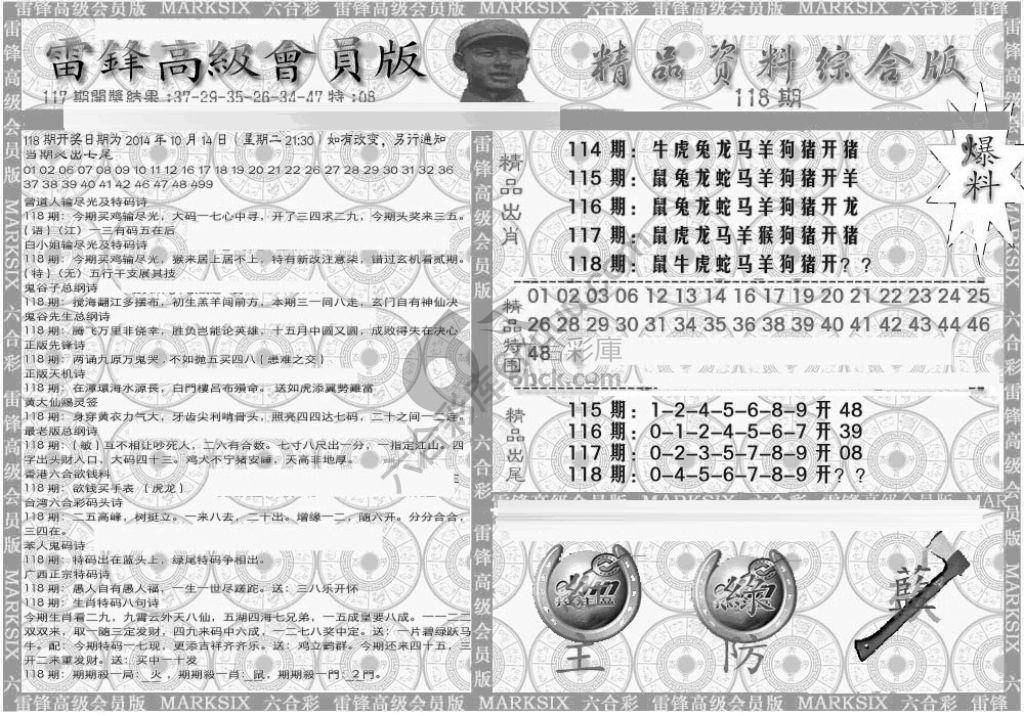 雷锋高级会员版 MARKSIX 六合彩 雷锋高级会员版 MARKSIX 六合彩 雷锋高级会员版 MARKSIX 六合彩 雷锋
雷鋒高級會員版
117期開獎結果:37-29-35-26-34-47特:08
精品资料综合版
118期
爆料
118期开奖日期为2014年10月14日(星期二21:30)如有改变,另行通知
当期必出七尾
01 02 06 07 08 09 10 11 12 16 17 18 19 20 21 22 26 27 28 29 30 31 32 36
37 38 39 40 41 42 46 47 48 499
曾道人输尽光及特码诗
118期:今期买鸡输尽光,大码一七心中寻,开了三四求二九,今期头奖来三五。
(语)(江)一三有码五在后
白小姐输尽光及特码诗
118期:今期买鸡输尽光,猴来居上居不上,特有新改注意柒,错过玄机看贰期。
(特)(无)五行干支展其技
鬼谷子总纲诗
118期:搅海翻江多摆布,初生羔羊闯前方,本期三一同八走,玄门自有神仙决
鬼谷先生总纲诗
118期:腾飞万里非侥幸,胜负岂能论英雄,十五月中圆又圆,成败得失在决心
正版先锋诗
118期:两诵九原万鬼哭,不如抛五买四八(患难之交)
正版天机诗
118期:在潭環海水源長,白門樓呂布殞命。送如虎添翼勢難當
黄大仙赐灵签
118期:身穿黄衣力气大,牙齿尖利啃骨头,照亮四四达七码,二十之间一二连。
最老版总纲诗
118期:(敏)互不相让吵死人,二六有合数。七寸八尺出一分,一指定江山。四
字出头财入口,大码四十三。鸡犬不宁猪安睡,天高非地厚。
香港六合欲钱料
118期:欲钱买手表 (虎龙)
台湾六合彩码头诗
118期:二五高峰,树挺立。一来八去,二十出。增缘一二,随六开。分分合合,
三四在。
苯人鬼码诗
118期:特码出在蓝头上,绿尾特码争相出。
广西正宗特码诗
118期:愚人自有愚人福,一生一世尽蹉跎。送:三八乐开怀
118期:生肖特码八句诗
今期生肖看二九,九霄云外天八仙,五湖四海七兄弟,一五成皇要八成。一一二二
双双来,取一随三定发财,四九来码中六成,一二七八奖中定。送:一片碧绿跃马
牛。配:今期特码一七现,更添吉祥齐齐乐。送:鸡立鹤群。今期还来四十五,三
开二来重发财。送:买中一十发
118期:期期殺一局:火,期期殺一肖:鼠,期期殺一門:2門。
精品出肖
114期:牛虎兔龙马羊狗猪开猪
115期:鼠兔龙蛇马羊狗猪开羊
116期:鼠兔龙蛇马羊狗猪开龙
117期:鼠虎龙马羊猴狗猪开猪
118期:鼠牛虎蛇马羊狗猪开??
精品特围
01 02 03 06 12 13 14 16 17 19 20 21 22 23 24 25
26 28 29 30 31 34 35 36 38 39 40 41 42 43 44 46
48
精品出尾
115期:1-2-4-5-6-8-9开48
116期:0-1-2-4-5-6-7开39
117期:0-2-3-5-7-8-9开08
118期:0-4-5-6-7-8-9开??
主
綠
防
藍
雷锋高级会员版 MARKSIX 六合彩 雷锋高级会员版 MARKSIX 六合彩 雷锋高级会员版 MARKSIX 六合彩 雷锋